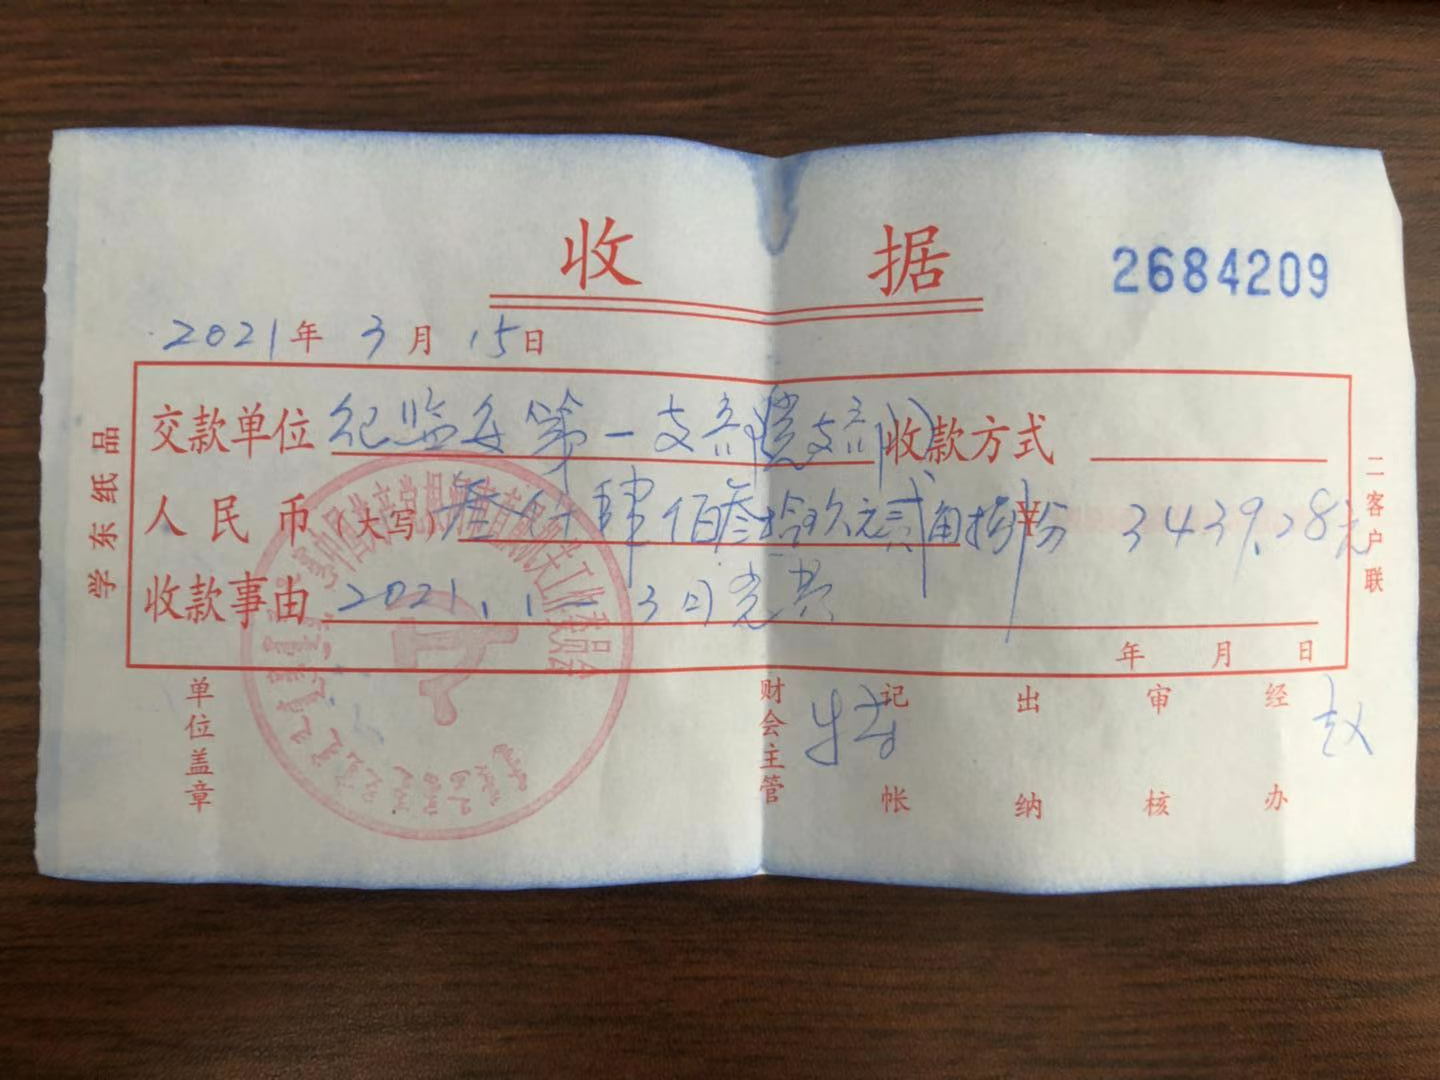 收据
2684209
2021年3月15日
交款单位 纪监委第一支部 收款方式
人民币(大写) 叁仟肆佰叁拾玖元贰角捌分 ¥ 3439.28元
收款事由 2021.1-3月党费
年 月 日
单位盖章 财会主管 记帐 出纳 审核 经办 赵
学东纸品
二客户联